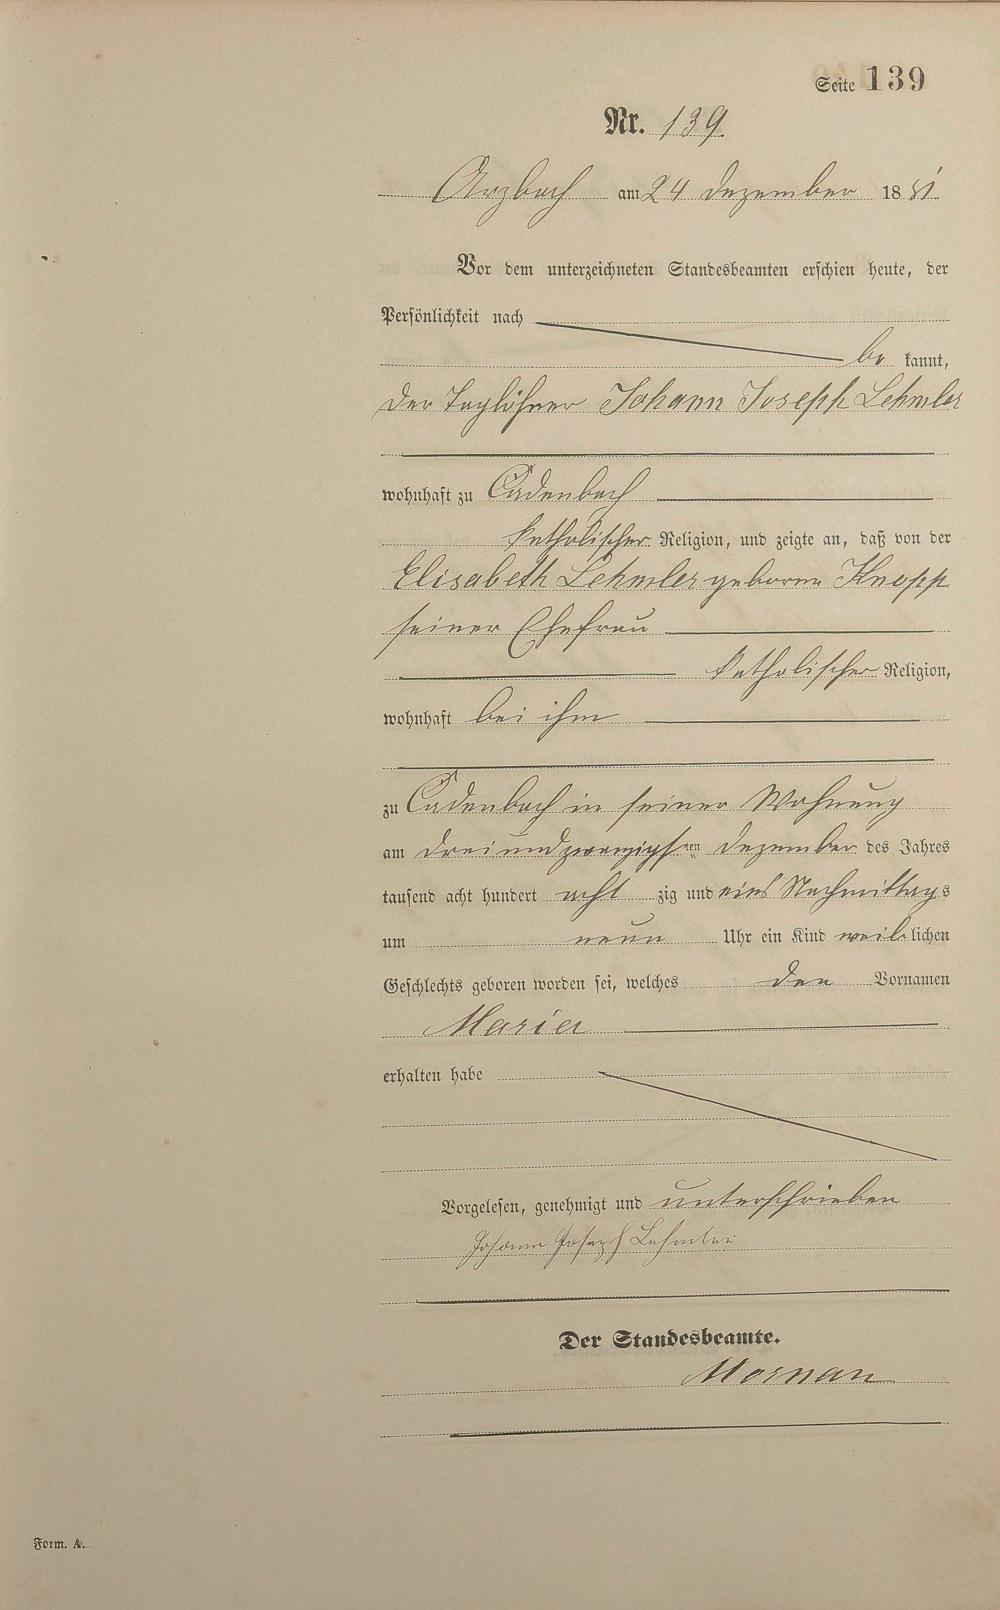 Seite 139
Nr. 139.
Arzbach am 24 Dezember 1881.
Vor dem unterzeichneten Standesbeamten erschien heute, der
Persönlichkeit nach
be kannt,
der Taglöhner Johann Joseph Lehmler
wohnhaft zu Cadenbach
katholischer Religion, und zeigte an, daß von der
Elisabeth Lehmler geborne Knopp
seiner Ehefrau
katholischer Religion,
wohnhaft bei ihm
zu Cadenbach in seiner Wohnung
am dreiundzwanzigsten Dezember des Jahres
tausend acht hundert acht zig und eins Nachmittags
um neun Uhr ein Kind weib lichen
Geschlechts geboren worden sei, welches den Vornamen
Maria
erhalten habe
Vorgelesen, genehmigt und unterschrieben
Johann Joseph Lehmler
Der Standesbeamte.
Form. A.